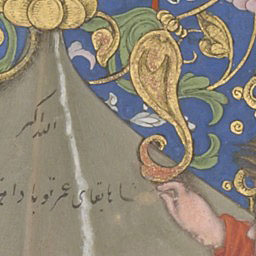 الله اکبر
شاها بقای عمر تو بادا